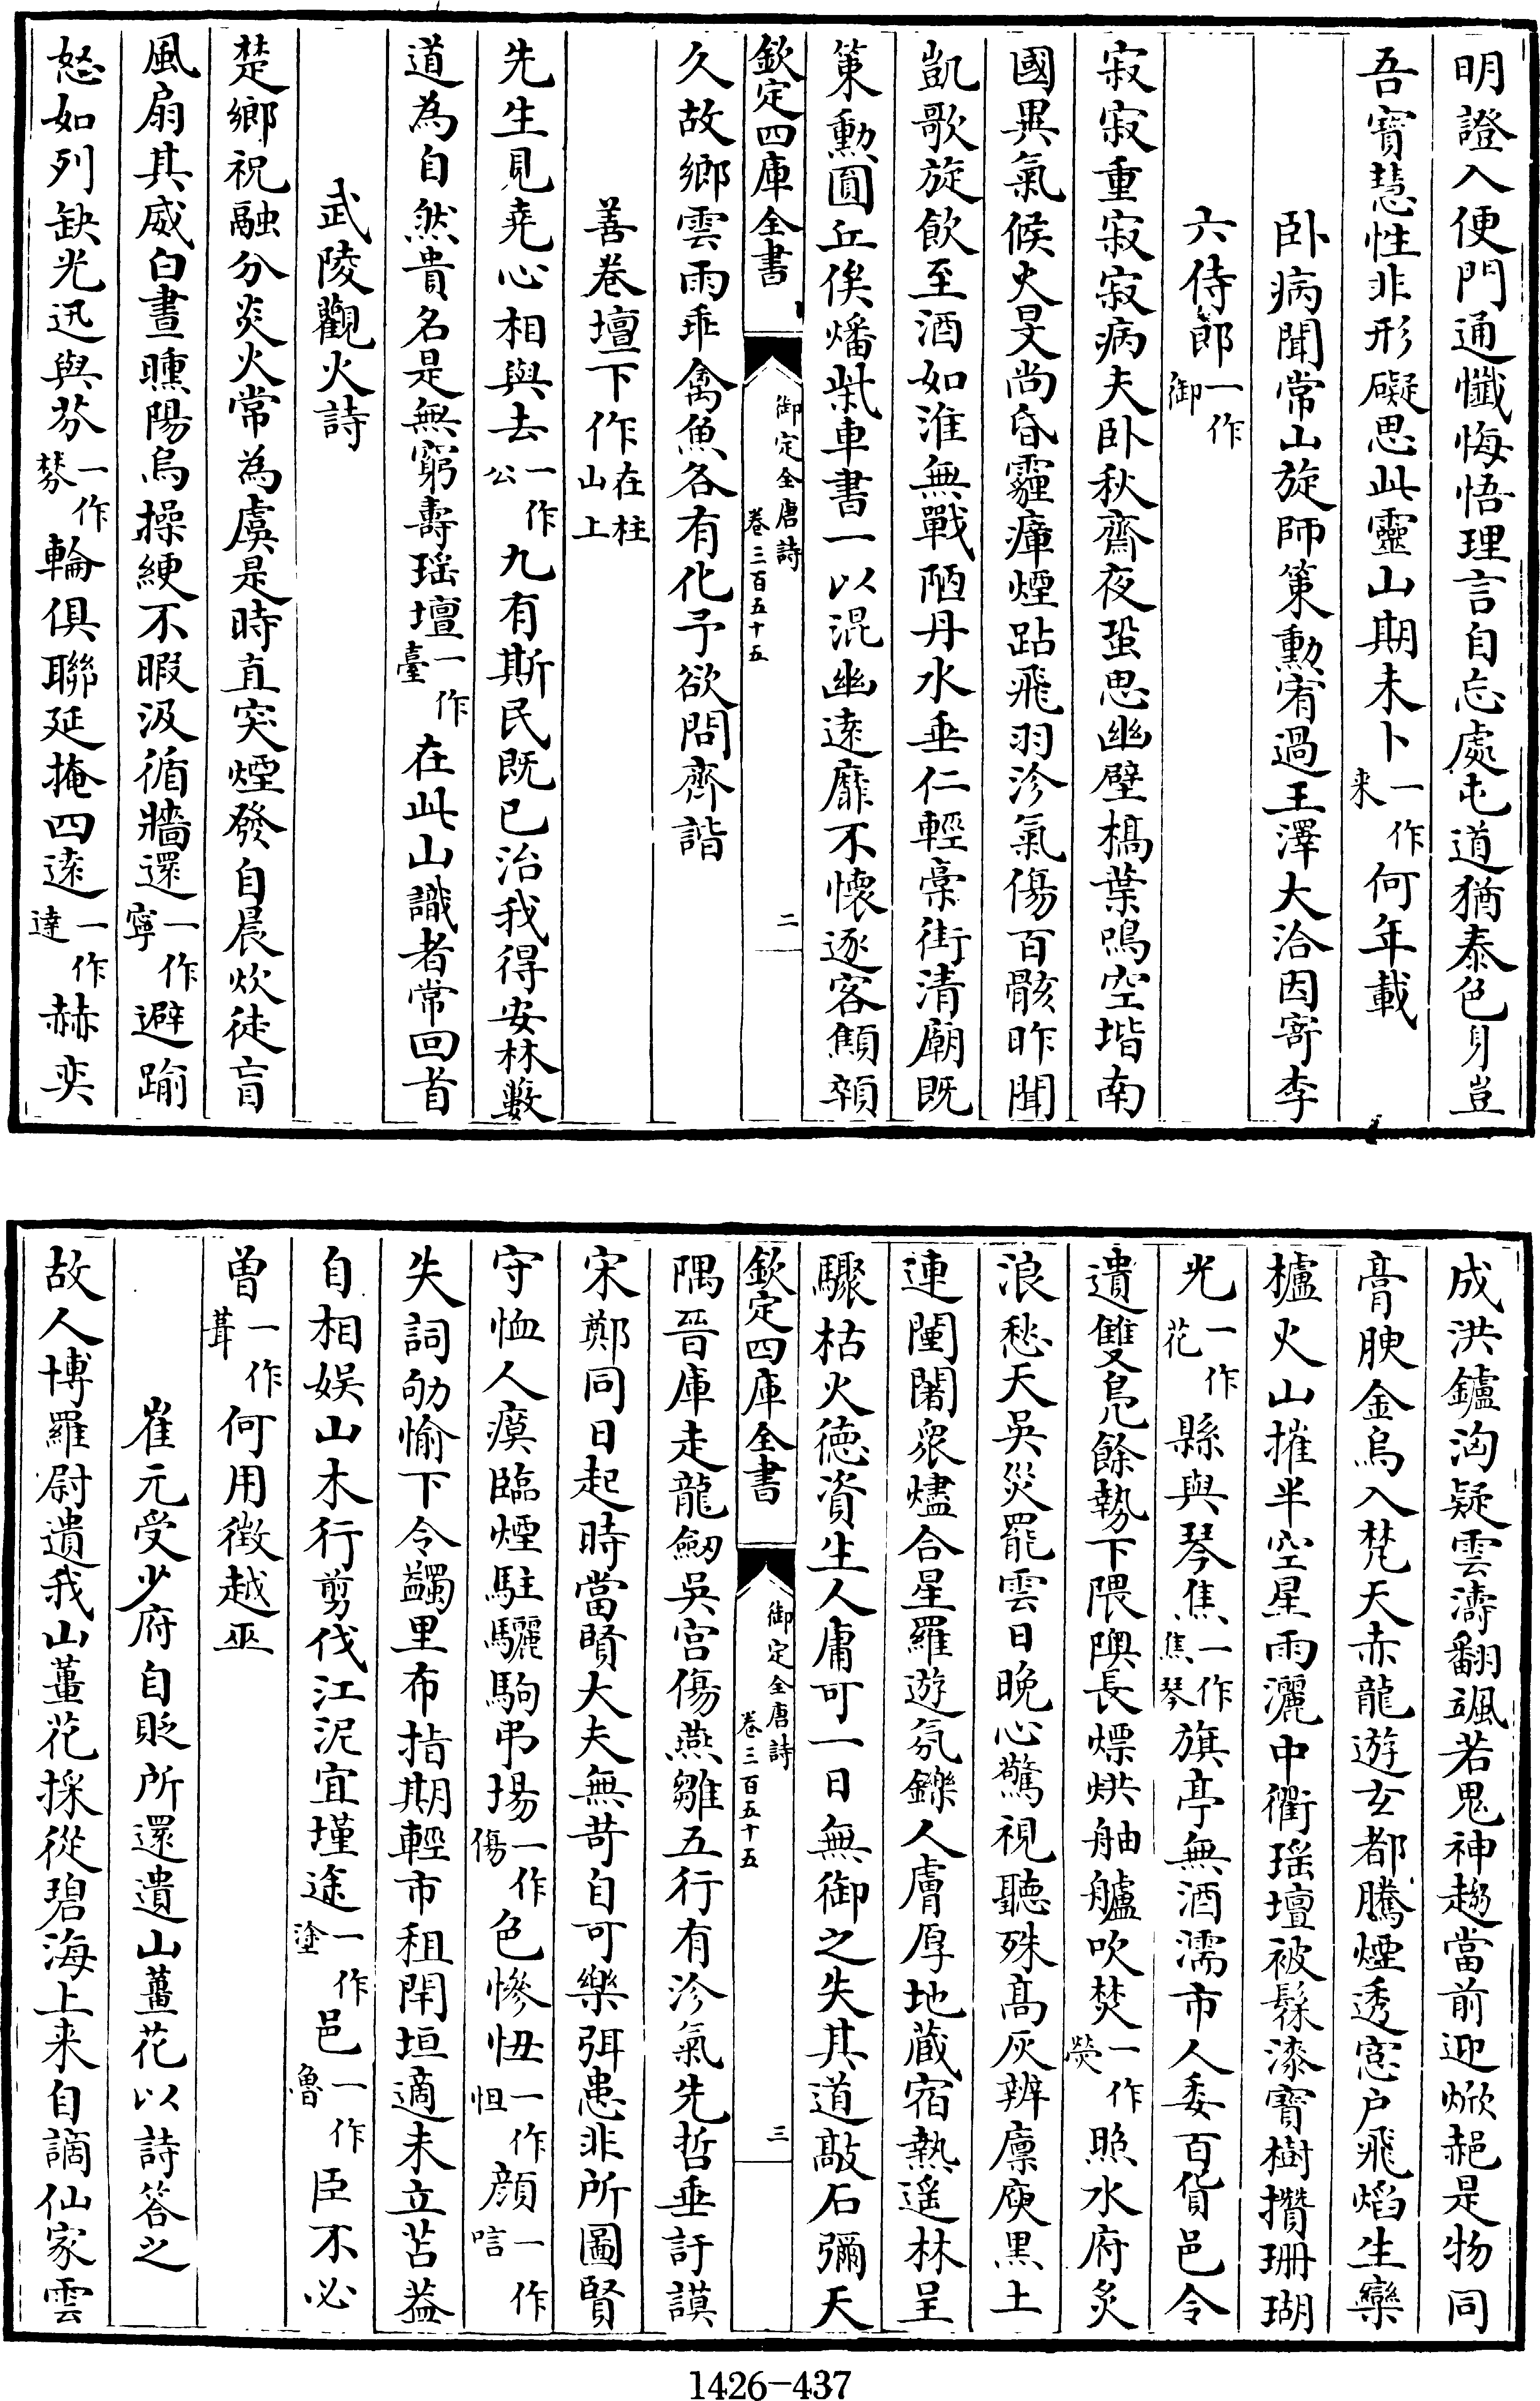 明證入便門通懺悔悟理言自忘處屯道猶泰色身豈
吾寳慧性非形礙思此靈山期未卜一作来何年載
卧病聞常山旋師策勳宥過王澤大洽因寄李
六侍郎一作御
寂寂重寂寂病夫卧秋齋夜蛩思幽壁槁葉鳴空堦南
國異氣候火旻尚昏霾瘴煙跕飛羽沴氣傷百骸昨聞
凱歌旋飲至酒如淮無戰陋丹水垂仁輕槀街清廟既
策勳圓丘俟燔柴車書一以混幽遠靡不懷逐客顦顇
欽定四庫全書
御定全唐詩
卷三百五十五
二
久故鄉雲雨乖禽魚各有化予欲問齊諧
善卷壇下作在柱山上
先生見堯心相與去一作公九有斯民既已治我得安林藪
道為自然貴名是無窮壽瑶壇一作臺在此山識者常回首
武陵觀火詩
楚鄉祝融分炎火常為虞是時直突煙發自晨炊徒盲
風扇其威白晝曛陽烏操綆不暇汲循牆還一作寧避踰
怒如列缺光迅與芬一作棼輪俱聯延掩四遠一作達赫奕
成洪鑪洶疑雲濤翻颯若鬼神趨當前迎焮赩是物同
膏腴金烏入梵天赤龍遊玄都騰煙透窓户飛焰生欒
櫨火山摧半空星雨灑中衢瑶壇被髹漆寳樹攢珊瑚
光一作花縣與琴焦一作焦琴旗亭無酒濡市人委百貨邑令
遺雙鳧餘勢下隈隩長熛烘舳艫吹焚一作熒照水府炙
浪愁天吳災罷雲日晚心驚視聽殊髙灰辨廩庾黒土
連闉闍衆燼合星羅遊氛鑠人膚厚地藏宿熱遥林呈
驟枯火德資生人庸可一日無御之失其道敲石彌天
欽定四庫全書
御定全唐詩
卷三百五十五
三
隅晉庫走龍劒吳宫傷燕雛五行有沴氣先哲垂訏謨
宋鄭同日起時當賢大夫無苛自可樂弭患非所圖賢
守恤人瘼臨煙駐驪駒弔場一作傷色慘忸一作怛顔一作唁
失詞劬愉下令蠲里布指期輕市租閈垣適未立苫葢
自相娱山木行剪伐江泥宜墐途一作塗邑一作魯臣不必
曽一作葺何用徴越巫
崔元受少府自貶所還遺山薑花以詩答之
故人博羅尉遺我山薑花採從碧海上来自謫仙家雲
1426-437